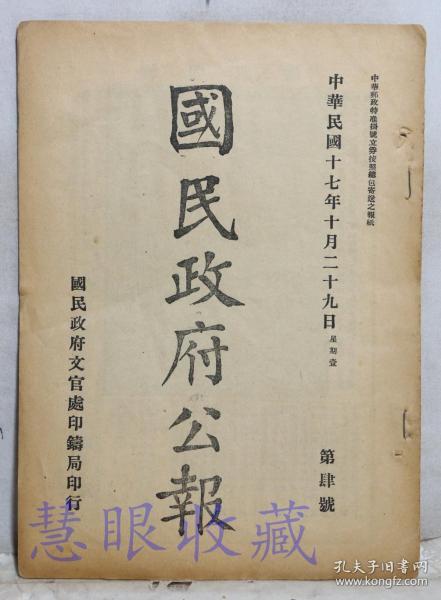 中華郵政特准掛號立券按照總包寄送之報紙
中華民國十七年十月二十九日 星期壹
第肆號
國民政府公報
國民政府文官處印鑄局印行
慧眼收藏
孔夫子旧书网
www.kongfz.com